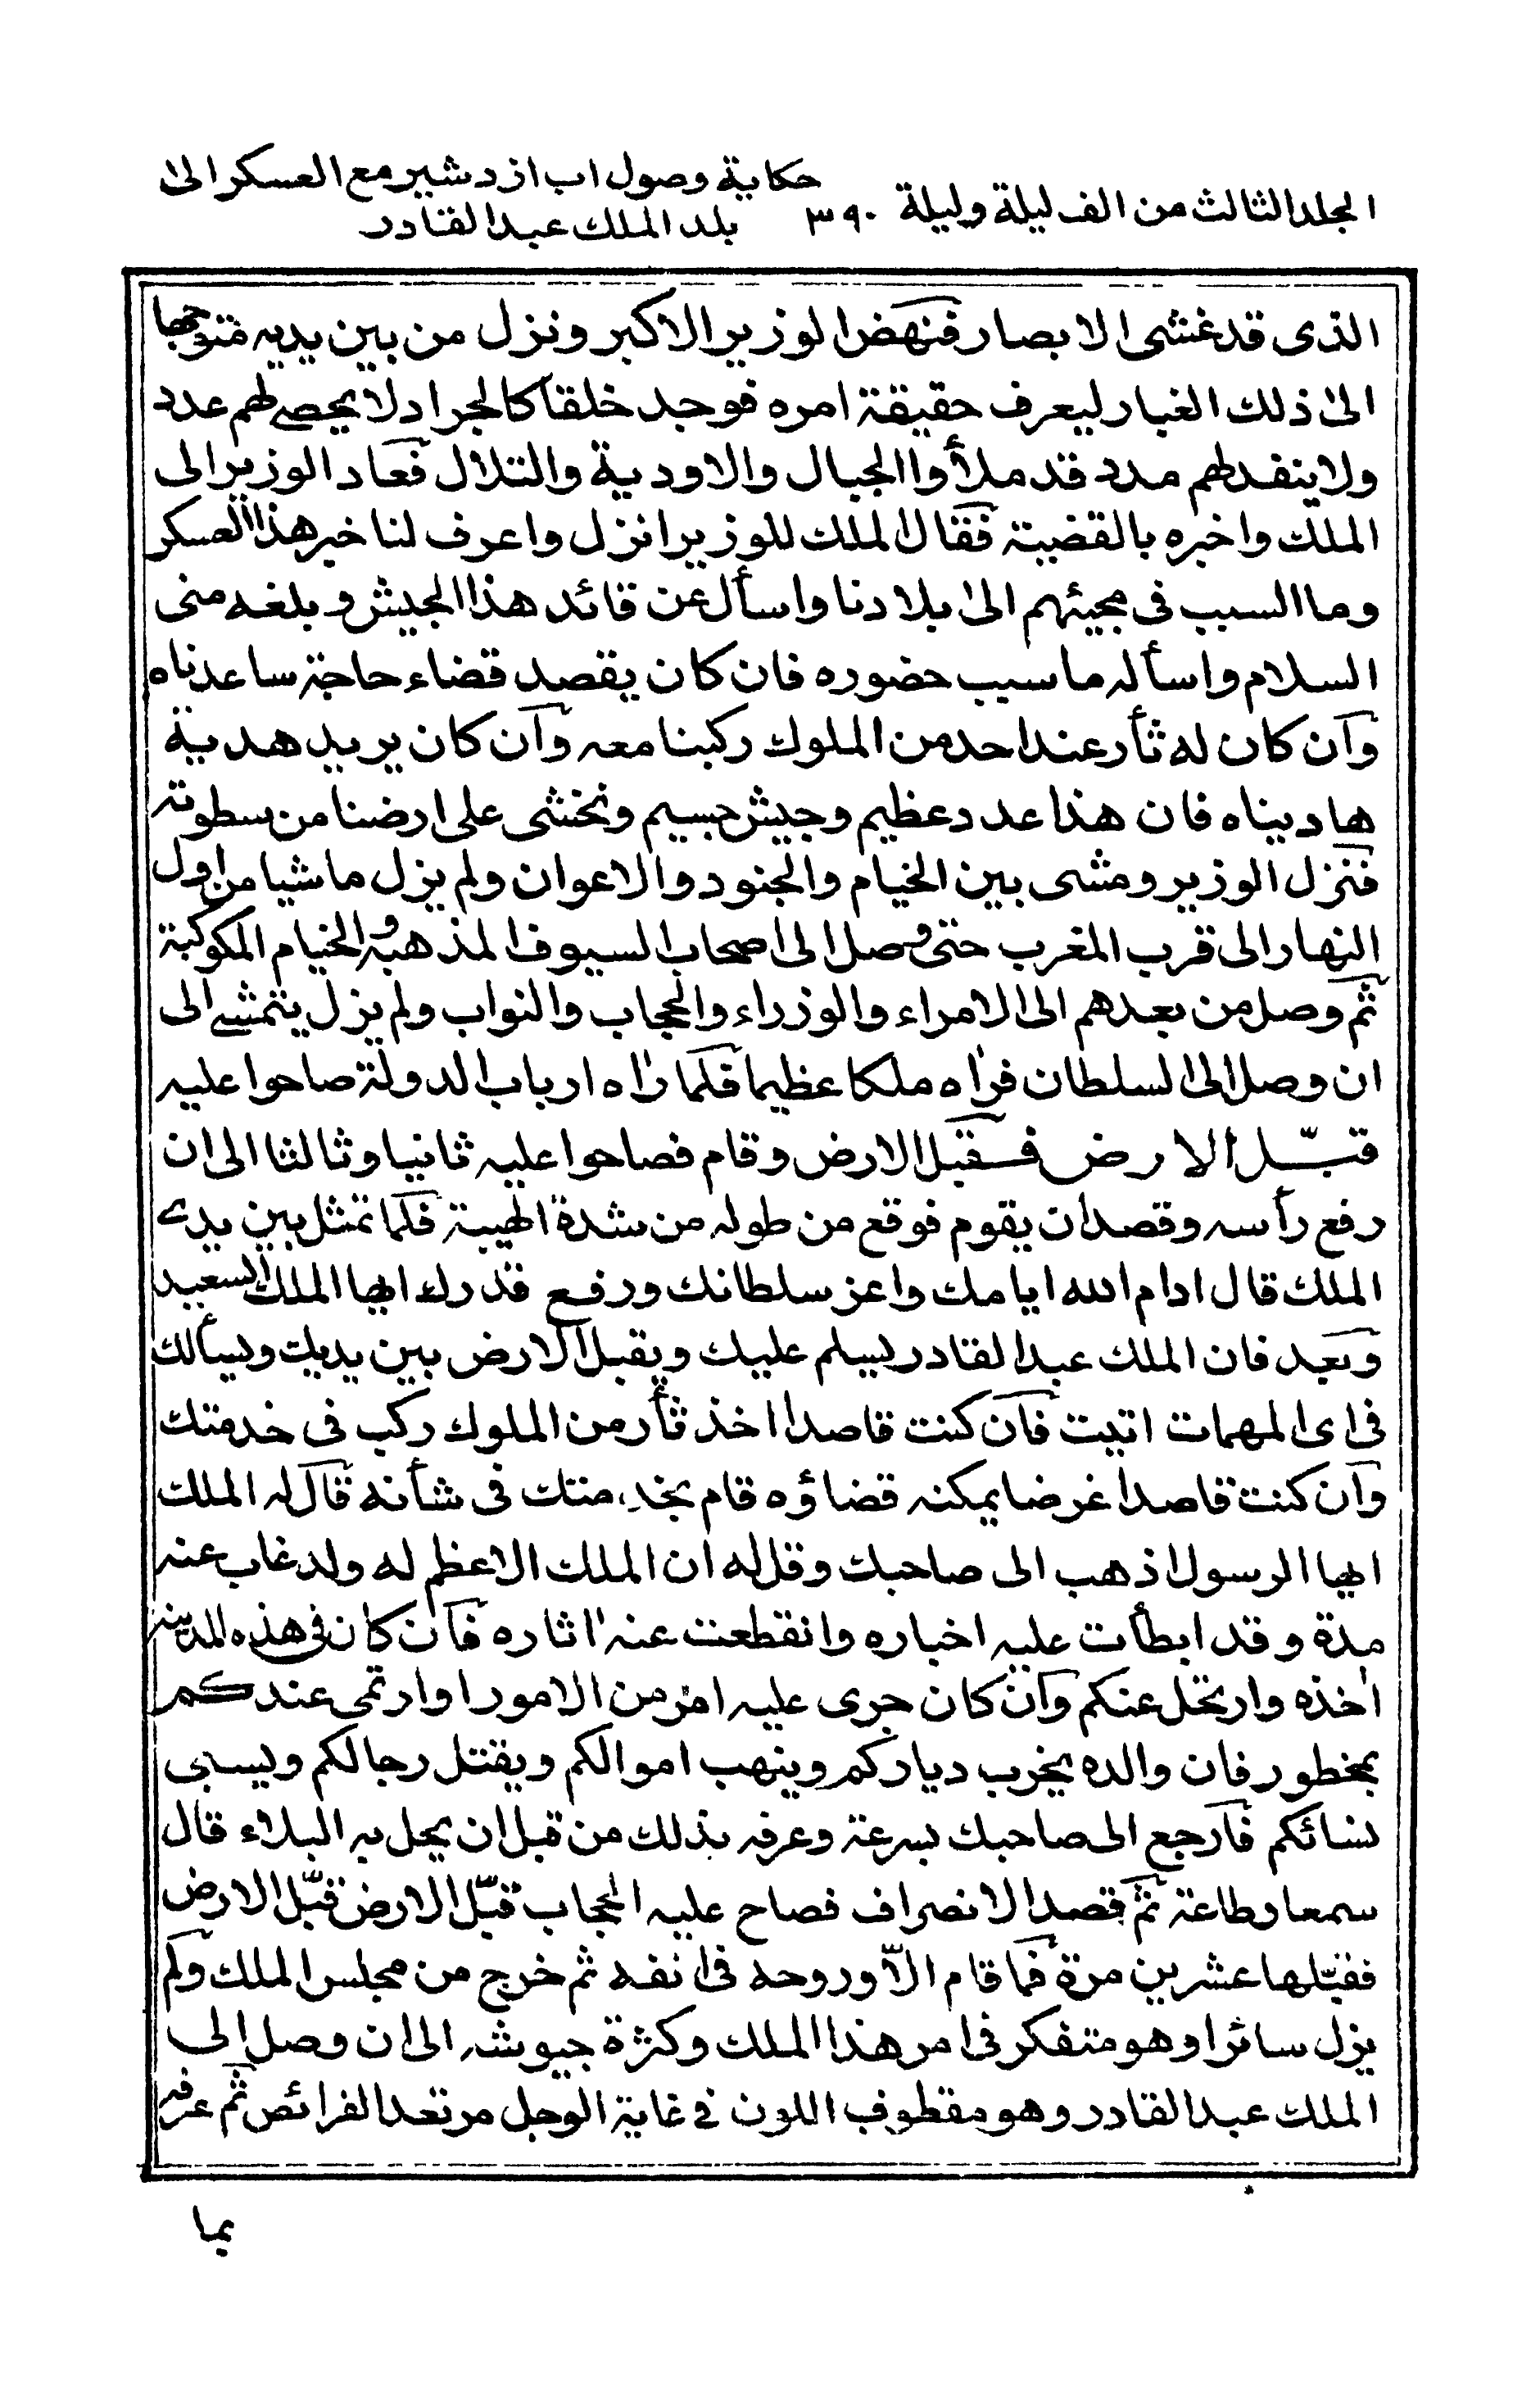 المجلد الثالث من الف ليلة وليلة ٣٩٠ حكاية وصول اب ازدشير مع العسكر الىٰ
بلد الملك عبد القادر
الذى قد غشى الابصار فنهض الوزير الاكبر ونزل من بين يديه متوجها
الىٰ ذلك الغبار ليعرف حقيقة امره فوجد خلقا كالجراد لا يحصى لهم عدد
ولا ينفد لهم مدد قد ملأوا الجبال والاودية والتلال فعاد الوزير الى
الملك واخبره بالقضية فقال الملك للوزير انزل واعرف لنا خبر هذا العسكر
وما السبب فى مجيئهم الىٰ بلادنا واسأل عن قائد هذا الجيش وبلغه منى
السلام واسأله ما سبب حضوره فان كان يقصد قضاء حاجة ساعدناه
وآن كان له ثأر عند احد من الملوك ركبنا معه وآن كان يريد هدية
هاديناه فان هذا عدد عظيم وجيش جسيم ونخشى على ارضنا من سطوته
فنزل الوزير ومشى بين الخيام والجنود والاعوان ولم يزل ماشيا من اول
النهار الى قرب المغرب حتى وصل الى اصحاب السيوف المذهبة والخيام المكوكبة
ثم وصل من بعدهم الى الامراء والوزراء والحجاب والنواب ولم يزل يتمشى الى
ان وصل الى السلطان فرأه ملكا عظيما فلما رأه ارباب الدولة صاحوا عليه
قبّل الارض فقبل الارض وقام فصاحوا عليه ثانيا وثالثا الى ان
رفع رأسه وقصد ان يقوم فوقع من طوله من شدة الهيبة فلما تمثل بين يدى
الملك قال ادام الله ايامك واعز سلطانك ورفع قدرك ايها الملك السعيد
وبعد فان الملك عبد القادر يسلم عليك ويقبل الارض بين يديك ويسألك
فى اى المهمات اتيت فآن كنت قاصدا اخذ ثأر من الملوك ركب فى خدمتك
وآن كنت قاصدا غرضا يمكنه قضاؤه قام بخدمتك فى شأنه قال له الملك
ايها الرسول اذهب الى صاحبك وقل له ان الملك الاعظم له ولد غاب عنه
مدة وقد ابطأت عليه اخباره وانقطعت عنه اثاره فآن كان فى هذه المدينة
اخذه وارتحل عنكم وآن كان جرى عليه امر من الامور او ارتمى عندكم
بمخطور فان والده يخرب دياركم وينهب اموالكم ويقتل رجالكم ويسبى
نسائكم فآرجع الى صاحبك بسرعة وعرفه بذلك من قبل ان يحل به البلاء قال
سمعا وطاعة ثم قصد الانصراف فصاح عليه الحجاب قبّل الارض قبّل الارض
فقبّلها عشرين مرة فما قام الّا وروحه فى انفه ثم خرج من مجلس الملك ولم
يزل سائرا وهو متفكر فى امر هذا الملك وكثرة جيوشه الى ان وصل الى
الملك عبد القادر وهو مقطوف اللون فى غاية الوجل مرتعد الفرائص ثم عرفه
بما